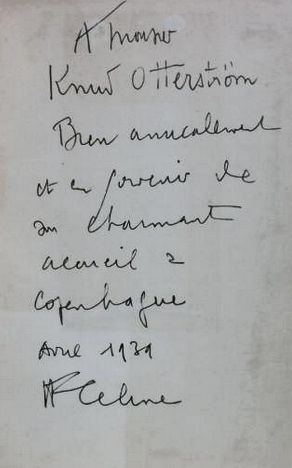 A Monsieur
Knud Otterström
Bien amicalement
et en souvenir de
son charmant
accueil à
Copenhague
Avril 1939
LF Celine